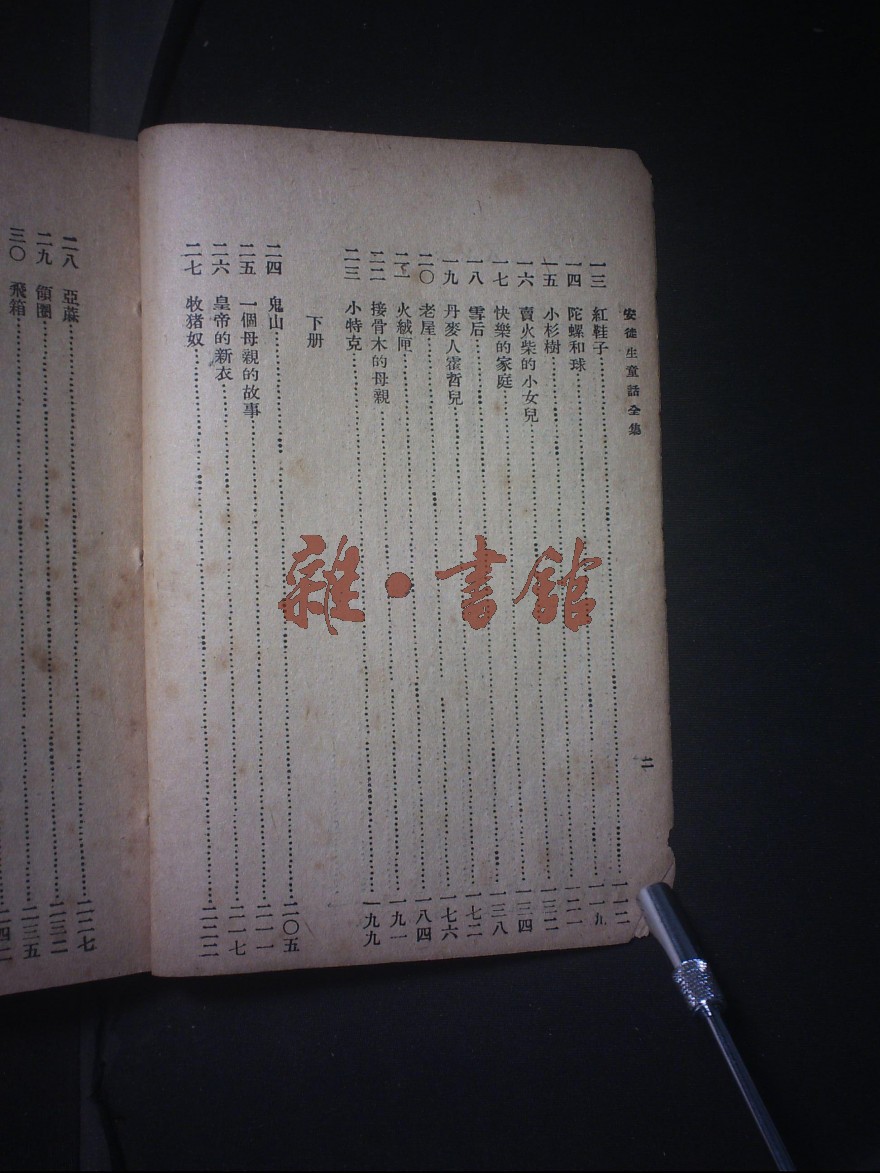 安徒生童話全集
二
一三 紅鞋子 一一二
一四 陀螺和球 一一九
一五 小杉樹 一二一
一六 賣火柴的小女兒 一三二
一七 快樂的家庭 一三四
一八 雪后 一三八
一九 丹麥人霍哲兒 一七二
二〇 老屋 一七六
二一 火絨匣 一八四
二二 接骨木的母親 一九一
二三 小特克 一九九
下册
二四 鬼山 二〇五
二五 一個母親的故事 二一一
二六 皇帝的新衣 二一七
二七 牧猪奴 二二二
二八 亞蔴 二二七
二九 領圈 二三二
三〇 飛箱 二三五
雜·書館